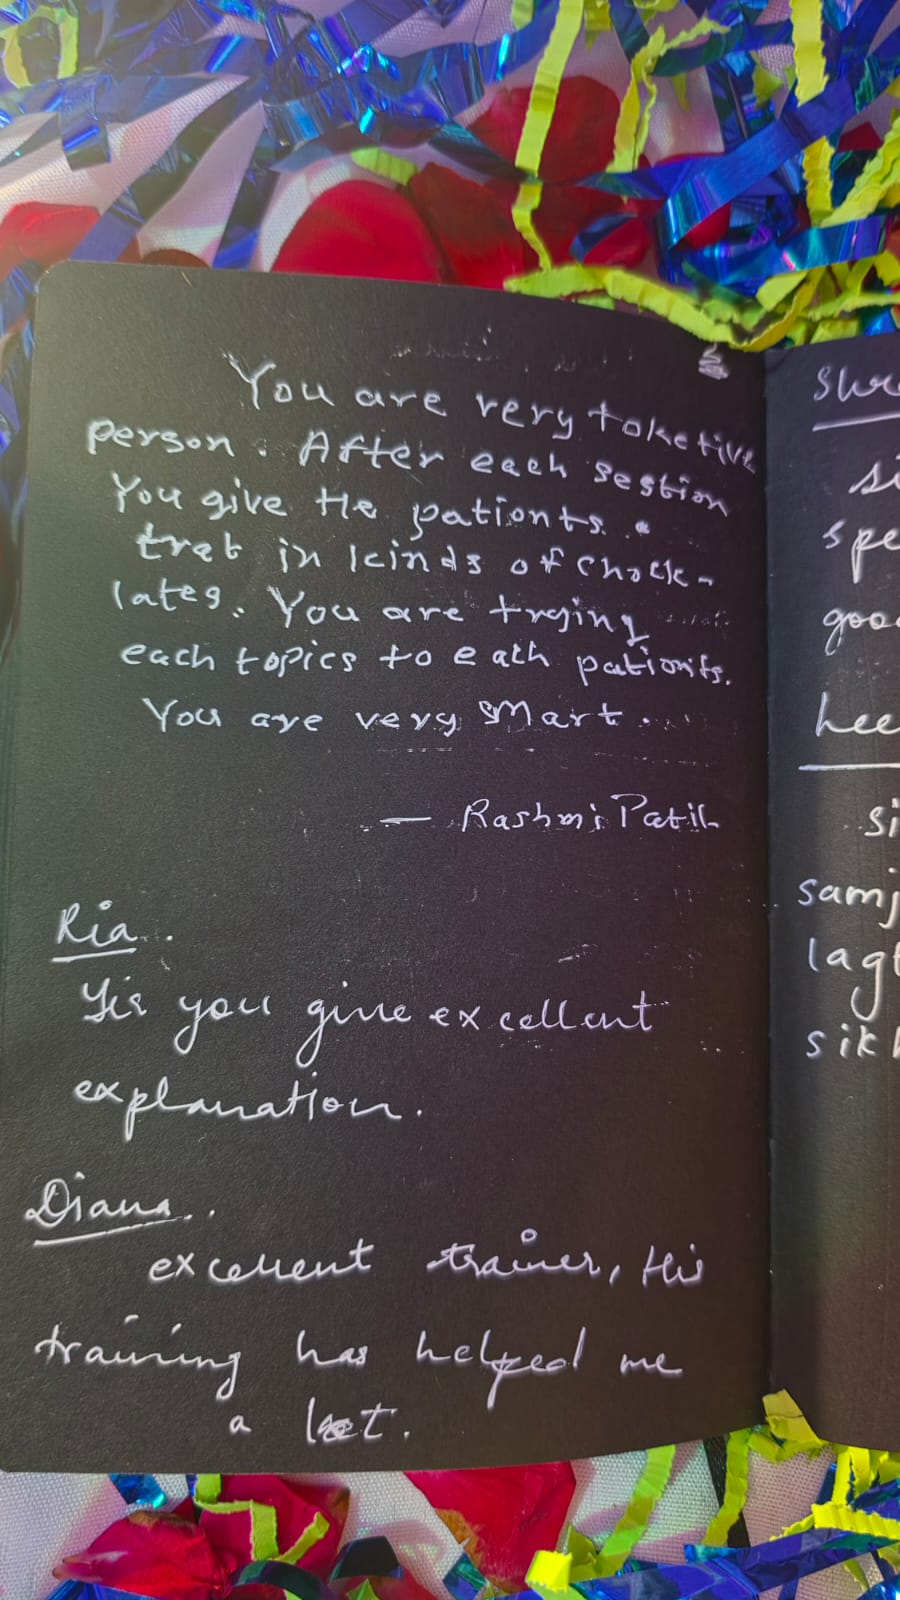 You are very toketive
person. After each session
You give the pationts a
tret in kinds of chock-
lates. You are trying
each topics to each pationts.
You are very smart.
— Rashmi Patil
Ria.
Sir you give excellent
explanation.
Diana.
excellent trainer, His
training has helped me
a lot.
Shr
si
spe
goo
hee
si
samj
lagt
sikh